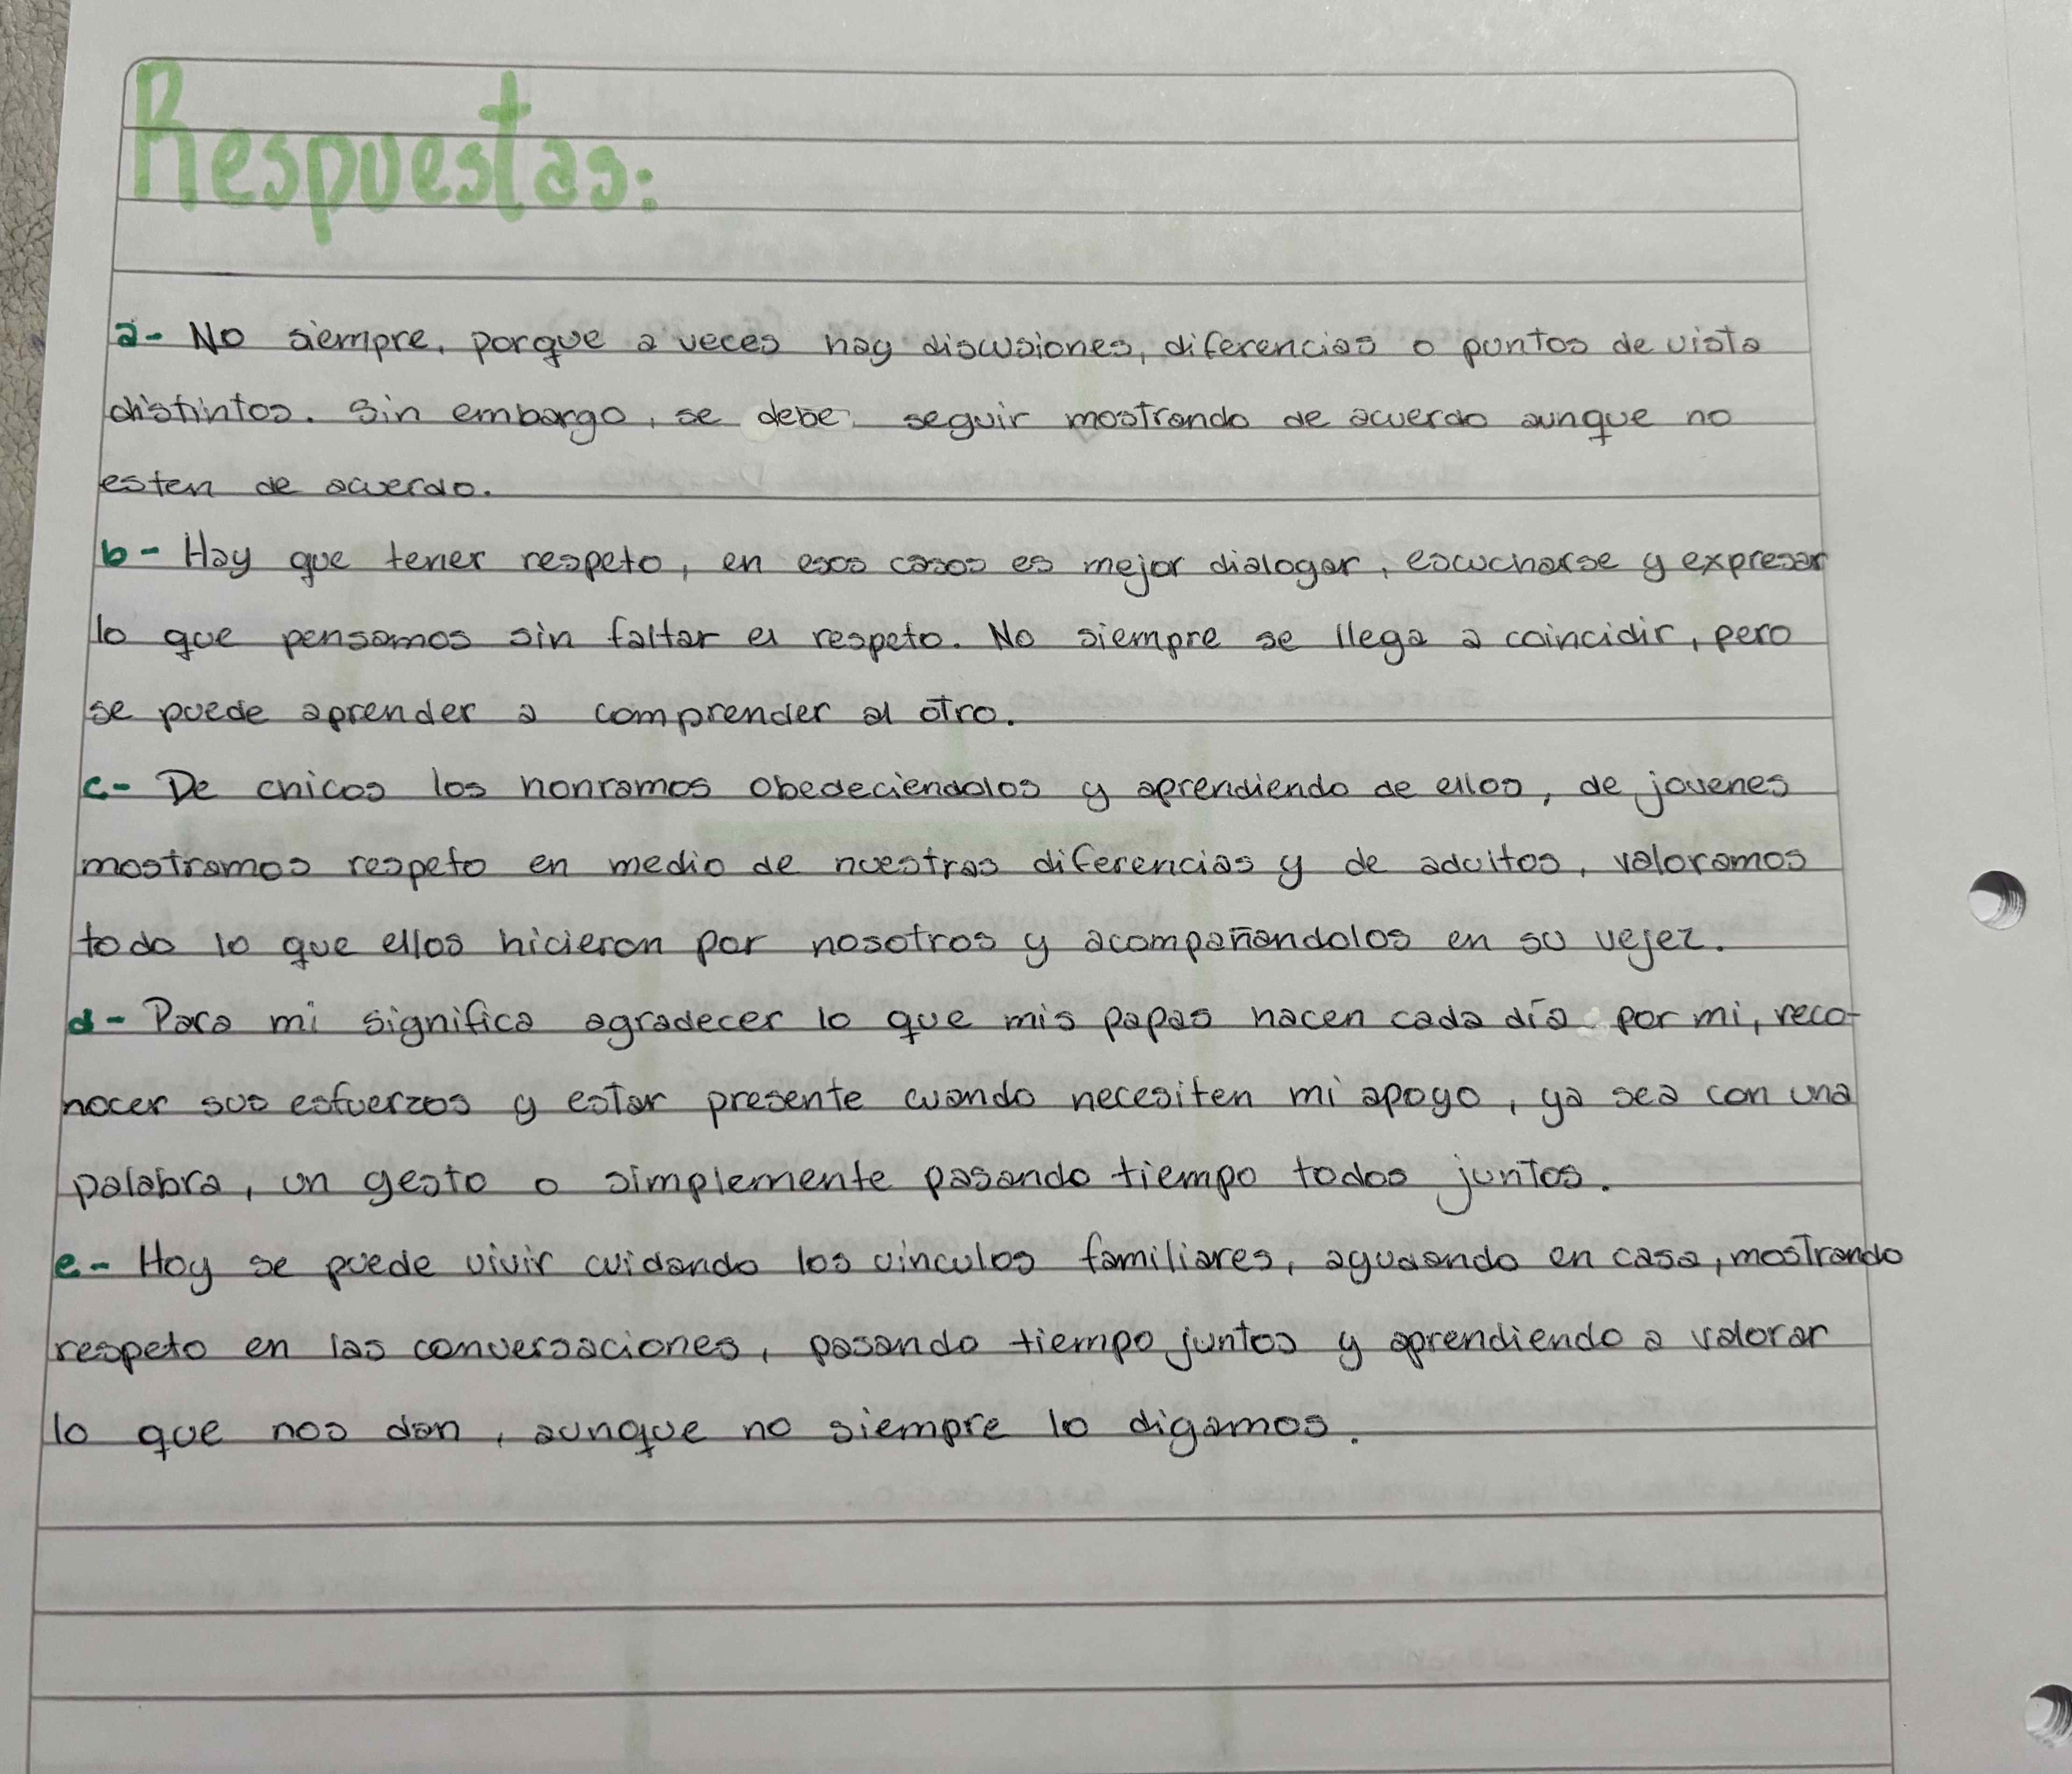 Respuestas:
a- No siempre, porque a veces hay discusiones, diferencias o puntos de vista
distintos. Sin embargo, se debe seguir mostrando de acuerdo aunque no
esten de acuerdo.
b- Hay que tener respeto, en esos casos es mejor dialogar, escucharse y expresar
lo que pensamos sin faltar el respeto. No siempre se llega a coincidir, pero
se puede aprender a comprender al otro.
c- De chicos los honramos obedeciendolos y aprendiendo de ellos, de jovenes
mostramos respeto en medio de nuestras diferencias y de adultos, valoramos
todo lo que ellos hicieron por nosotros y acompañandolos en su vejez.
d- Para mi significa agradecer lo que mis papas hacen cada día por mi, reco-
nocer sus esfuerzos y estar presente cuando necesiten mi apoyo, ya sea con una
palabra, un gesto o simplemente pasando tiempo todos juntos.
e- Hoy se puede vivir cuidando los vinculos familiares, ayudando en casa, mostrando
respeto en las conversaciones, pasando tiempo juntos y aprendiendo a valorar
lo que nos dan, aunque no siempre lo digamos.